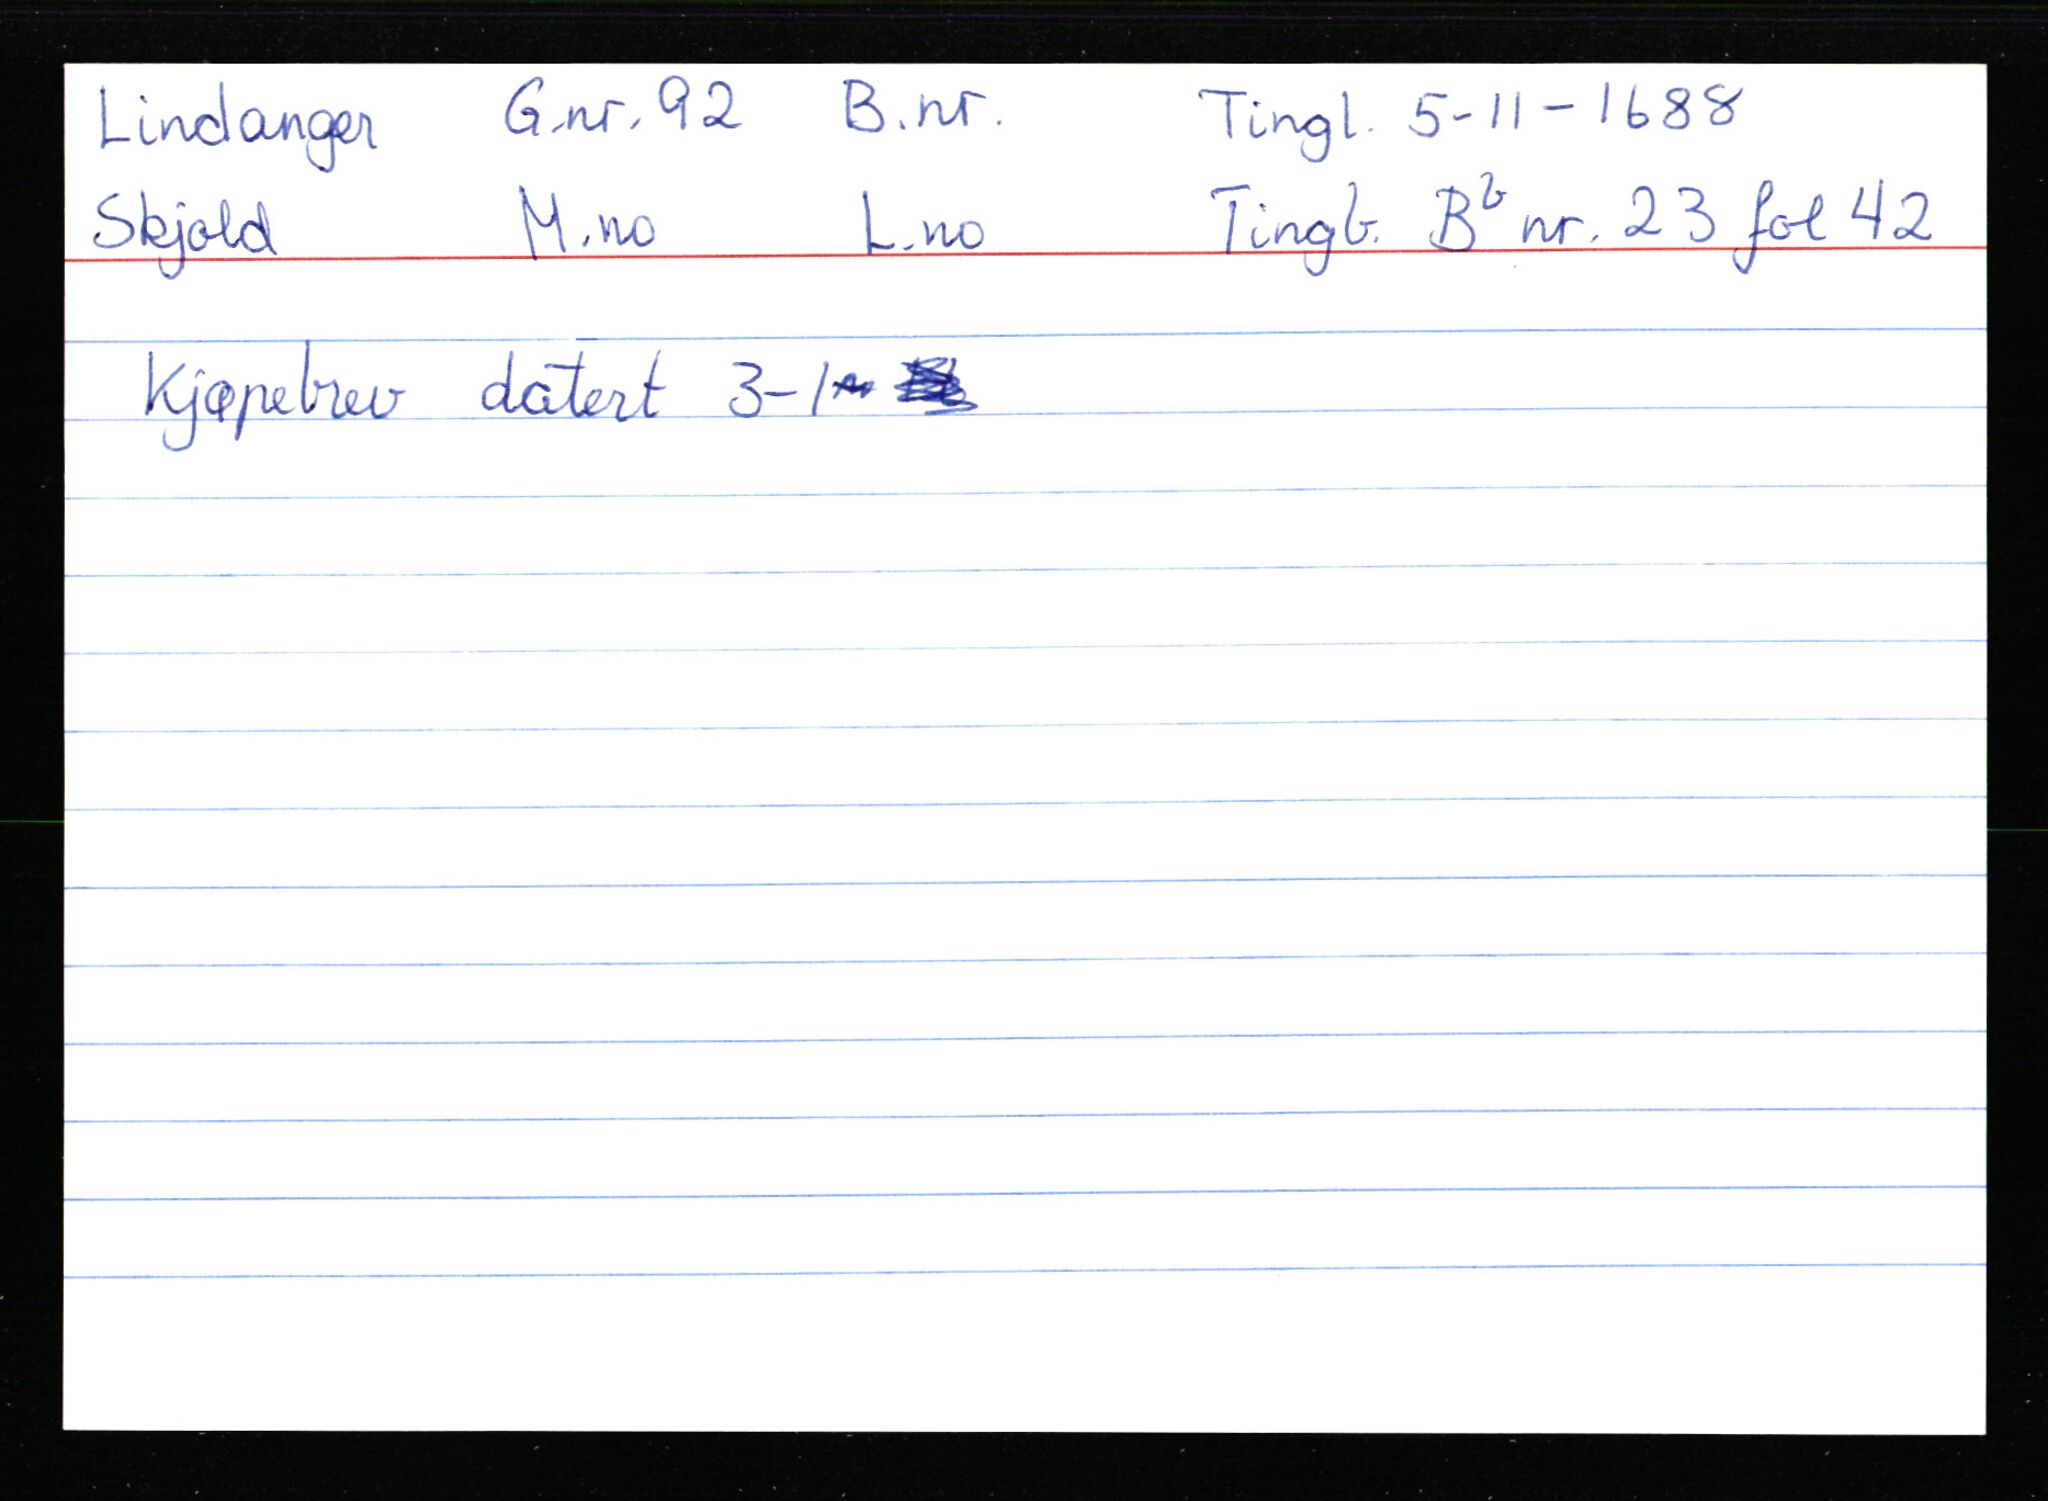 Lindanger G.nr. 92 B.nr. Tingl. 5-11-1688
Skjold M.no L.no Tingb. Bb nr. 23 fol 42
Kjøpebrev datert 3-1